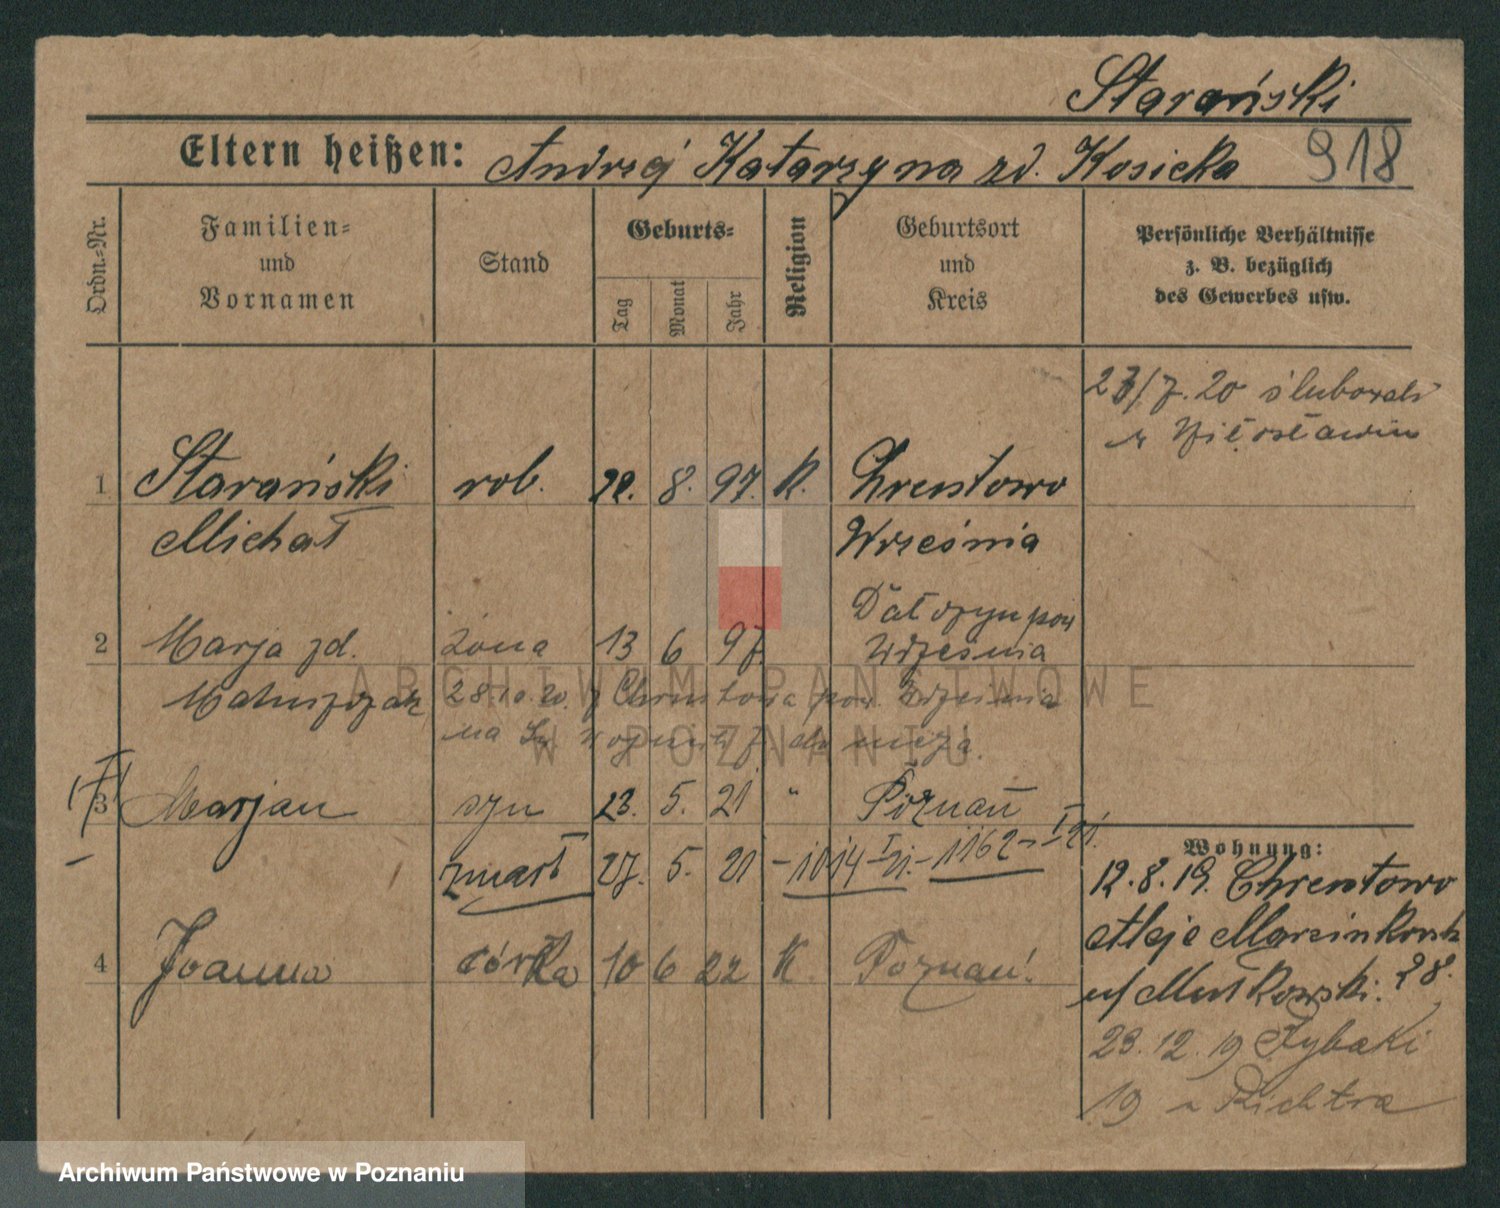 Starański
Eltern heißen: Andrzej Katarzyna zd. Kosicka 918
Ordn.-Nr.
Familien-
und
Vornamen
Stand
Geburts-
Tag
Monat
Jahr
Religion
Geburtsort
und
Kreis
Persönliche Verhältnisse
z. B. bezüglich
des Gewerbes usw.
/7. 20 ślubował
w
1 Starański rob. 8. 97. K. Chrentowo
Michał Września
2 Marja zd. żona 13 6 97. pow
Września
Matuszczak 28.10.20. z Chrentowa pow. Września
na do męża.
3 Marjan syn 23. 5. 21 " Poznań
zmarł 27. 5. 21 - 1014 - I 21. - 1162 - I 21.
4 Joanna córka 10 6 22 K. Poznań.
Wohnung:
12. 8. 19. Chrentowo
Aleje Marcinkowsk
28.
23. 12. 19 Rybaki
19 Richtra
ARCHIWUM PAŃSTWOWE
W POZNANIU
Archiwum Państwowe w Poznaniu